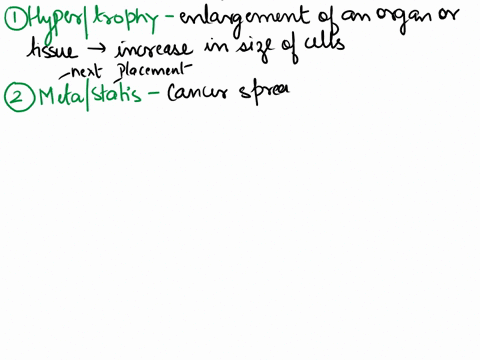 ① Hyper/trophy - enlargement of an organ or
tissue → increase in size of cells
-next placement-
② Meta/statis - Cancer sprea